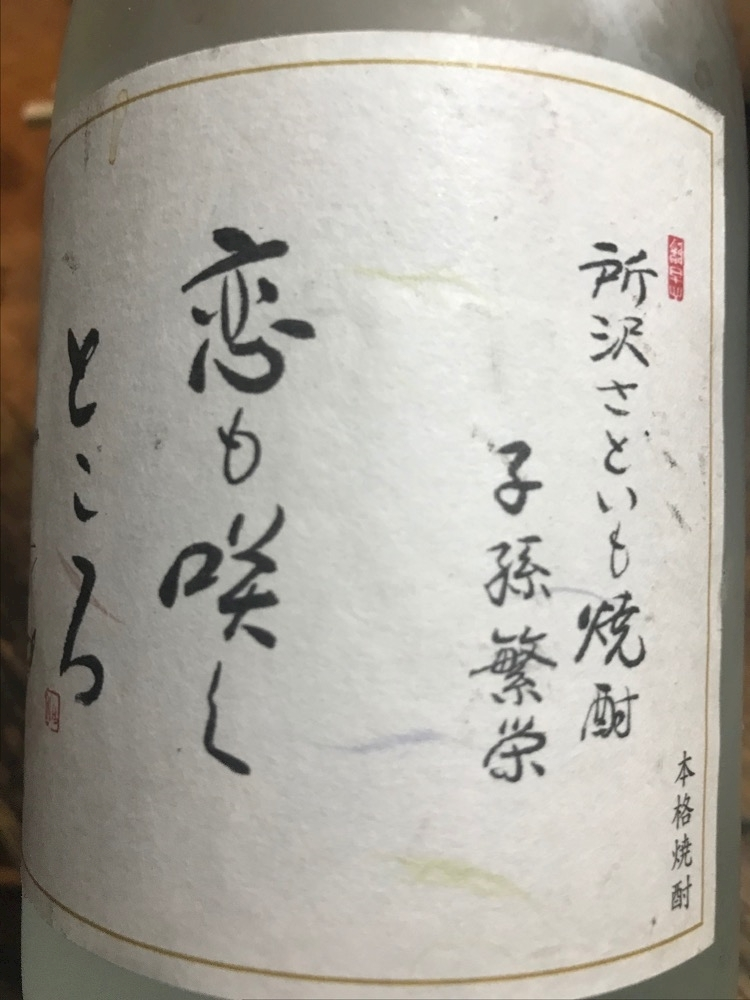 所沢さといも焼酎
子孫繁栄
恋も咲く
ところ
本格焼酎